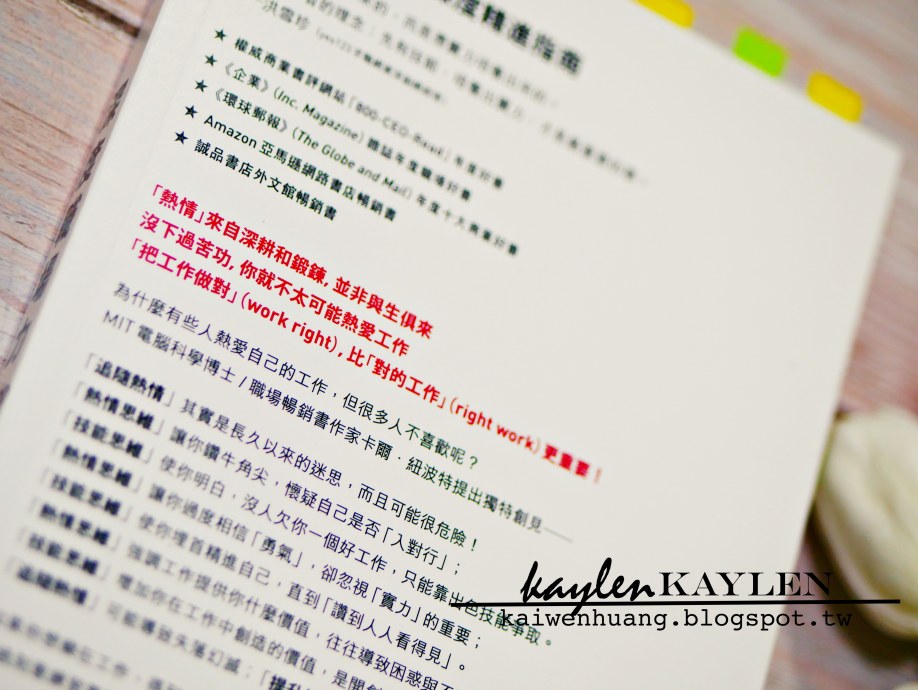 精進指南
洪雪珍
★ 權威商業書評網站「800-CEO-Read」年度好書
★ 《企業》(Inc. Magazine) 雜誌年度職場好書
★ 《環球郵報》(The Globe and Mail) 年度十大商業好書
★ Amazon 亞馬遜網路書店暢銷書
★ 誠品書店外文館暢銷書
「熱情」來自深耕和鍛鍊, 並非與生俱來
沒下過苦功, 你就不太可能熱愛工作
「把工作做對」(work right), 比「對的工作」(right work) 更重要！
為什麼有些人熱愛自己的工作，但很多人不喜歡呢？
MIT 電腦科學博士 / 職場暢銷書作家卡爾．紐波特提出獨特創見——
「追隨熱情」其實是長久以來的迷思，而且可能很危險！
「熱情思維」讓你鑽牛角尖，懷疑自己是否「入對行」；
「技能思維」使你明白，沒人欠你一個好工作，只能靠出色技能爭取。
「熱情思維」讓你過度相信「勇氣」，卻忽視「實力」的重要；
「技能思維」使你埋首精進自己，直到「讚到人人看得見」。
「熱情思維」強調工作提供你什麼價值，往往導致困惑與不
「技能思維」增加你在工作中創造的價值，是開創
「追隨熱情」可能導致失落幻滅；「提升
kaylen KAYLEN
kaiwenhuang.blogspot.tw